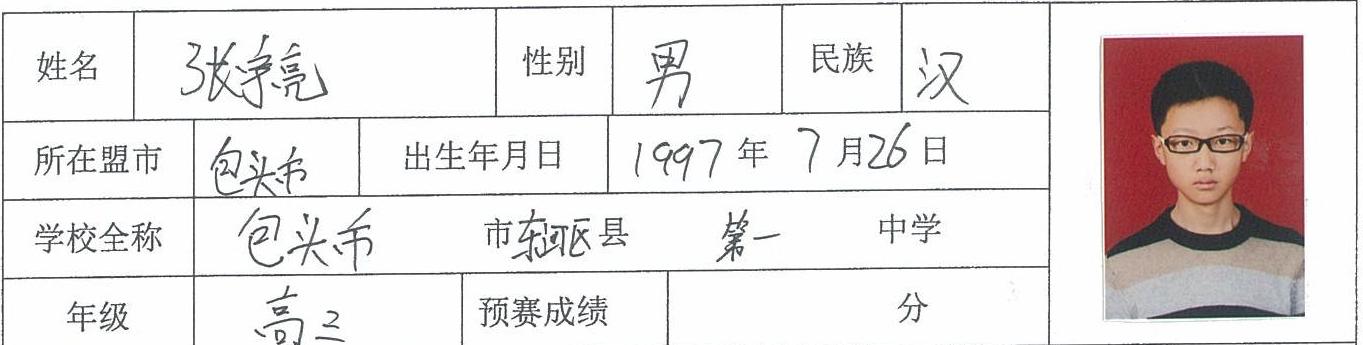 姓名 张净亮 性别 男 民族 汉
所在盟市 包头市 出生年月日 1997年7月26日
学校全称 包头市 市东河区县 第一 中学
年级 高三 预赛成绩 分